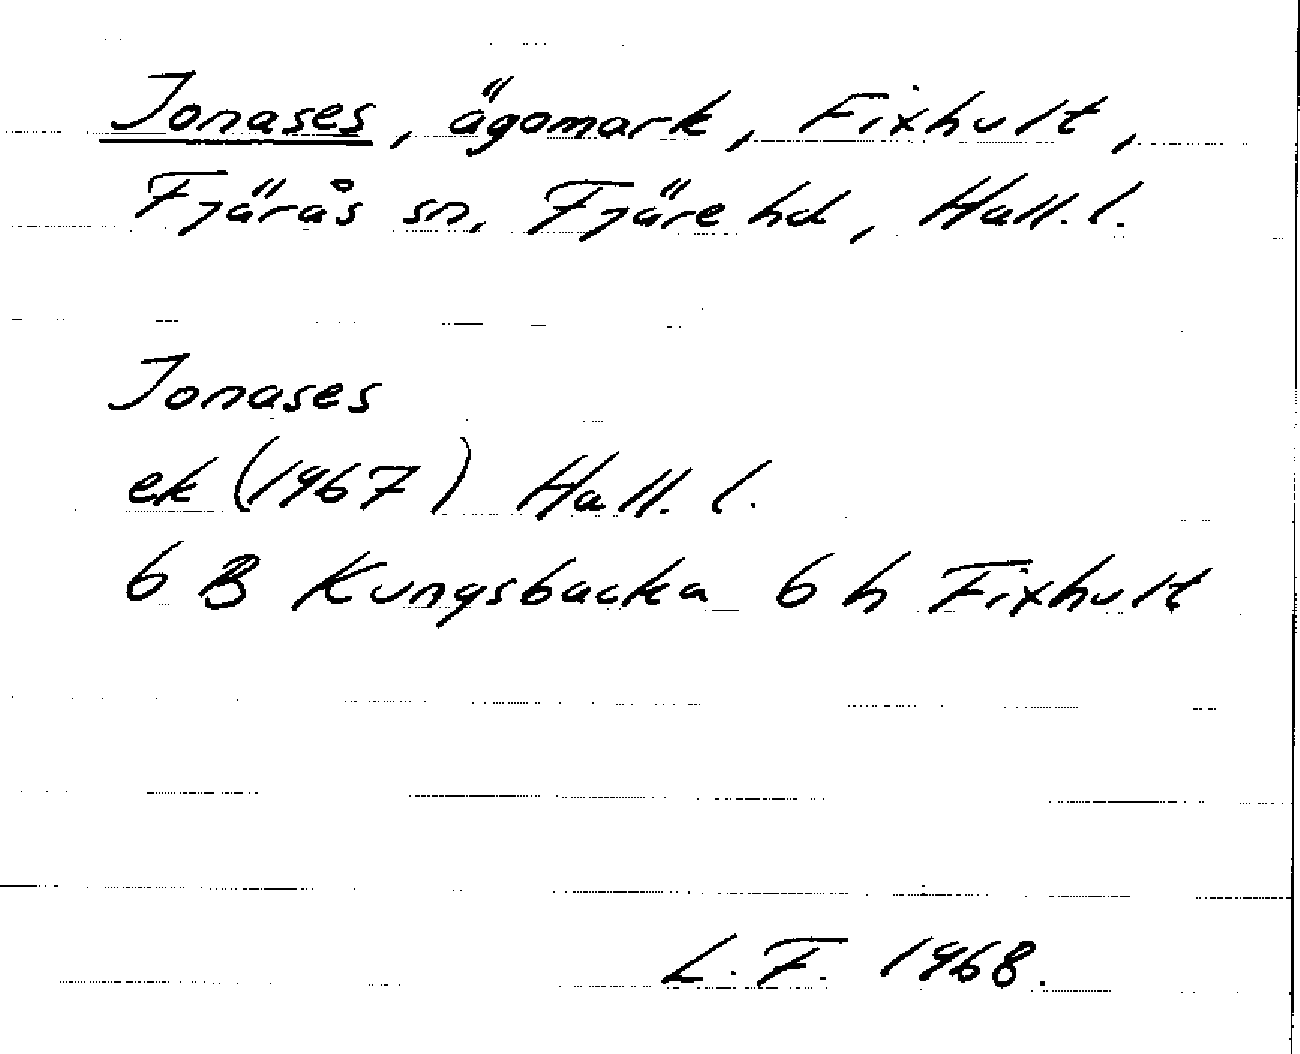 Jonases, ägomark, Fixhult,
Fjärås sn, Fjäre hd, Hall. l.
Jonases
ek (1967) Hall. l.
6 B Kungsbacka 6 h Fixhult
L. F. 1968.